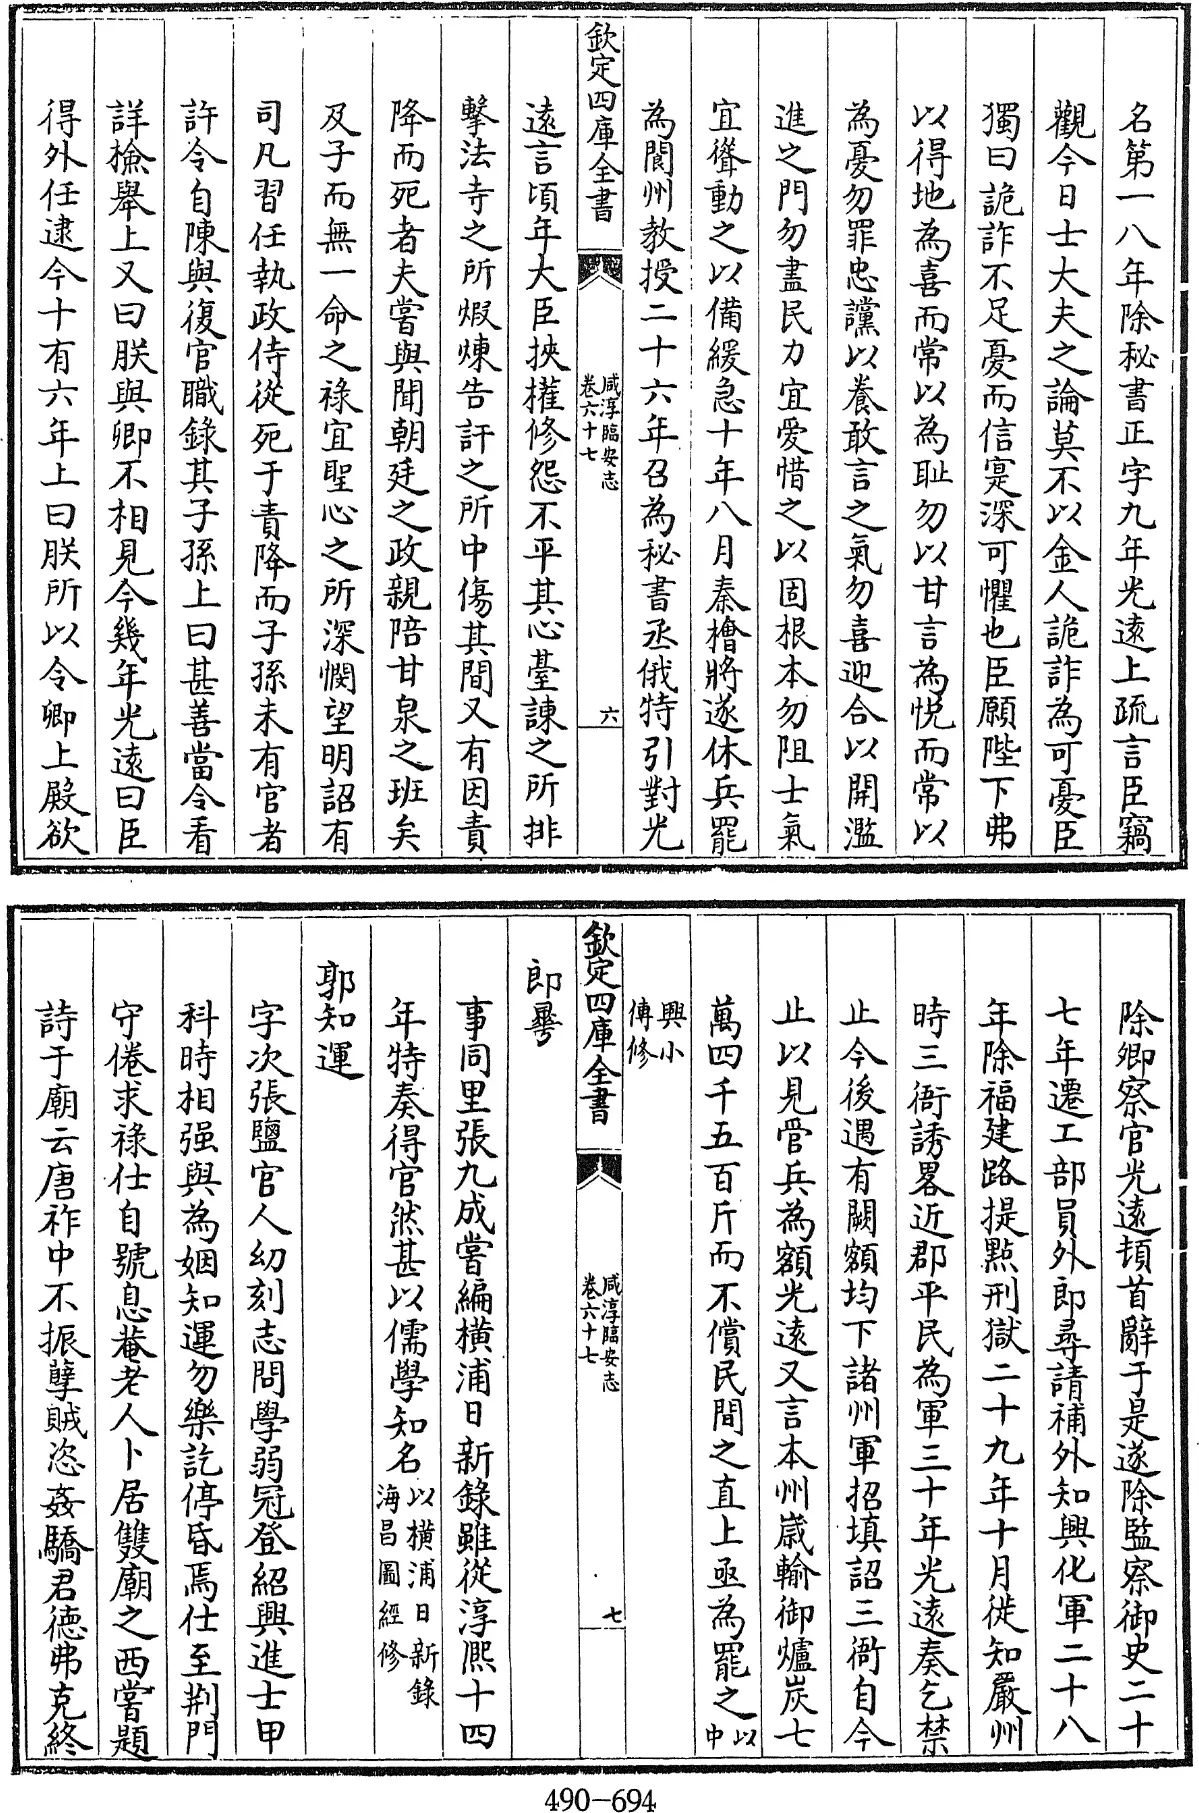 名第一八年除秘書正字九年光遠上疏言臣竊
觀今日士大夫之論莫不以金人詭詐為可憂臣
獨曰詭詐不足憂而信寔深可懼也臣願陛下弗
以得地為喜而常以為耻勿以甘言為悦而常以
為憂勿罪忠讜以養敢言之氣勿喜迎合以開濫
進之門勿盡民力宜愛惜之以固根本勿阻士氣
宜聳動之以備緩急十年八月秦檜將遂休兵罷
為閬州教授二十六年召為秘書丞俄特引對光
欽定四庫全書
咸淳臨安志
卷六十七
六
遠言頃年大臣挾權修怨不平其心臺諫之所排
擊法寺之所煅煉告訐之所中傷其間又有因責
降而死者夫嘗與聞朝廷之政親陪甘泉之班矣
及子而無一命之祿宜聖心之所深憫望明詔有
司凡習任執政侍從死于責降而子孫未有官者
許令自陳與復官職錄其子孫上曰甚善當令看
詳檢舉上又曰朕與卿不相見今幾年光遠曰臣
得外任逮今十有六年上曰朕所以令卿上殿欲
除卿察官光遠頓首辭于是遂除監察御史二十
七年遷工部員外郎尋請補外知興化軍二十八
年除福建路提點刑獄二十九年十月徙知嚴州
時三衙誘畧近郡平民為軍三十年光遠奏乞禁
止今後遇有闕額均下諸州軍招填詔三衙自今
止以見管兵為額光遠又言本州歲輸御爐炭七
萬四千五百斤而不償民間之直上亟為罷之以中
興小
傳修
欽定四庫全書
咸淳臨安志
卷六十七
七
郎曅
事同里張九成嘗編橫浦日新錄雖從淳熙十四
年特奏得官然甚以儒學知名以橫浦日新錄
海昌圖經修
郭知運
字次張鹽官人幼刻志問學弱冠登紹興進士甲
科時相强與為姻知運勿樂訖停昏焉仕至荆門
守倦求祿仕自號息菴老人卜居雙廟之西嘗題
詩于廟云唐祚中不振孽賊恣姦驕君德弗克終
490-694